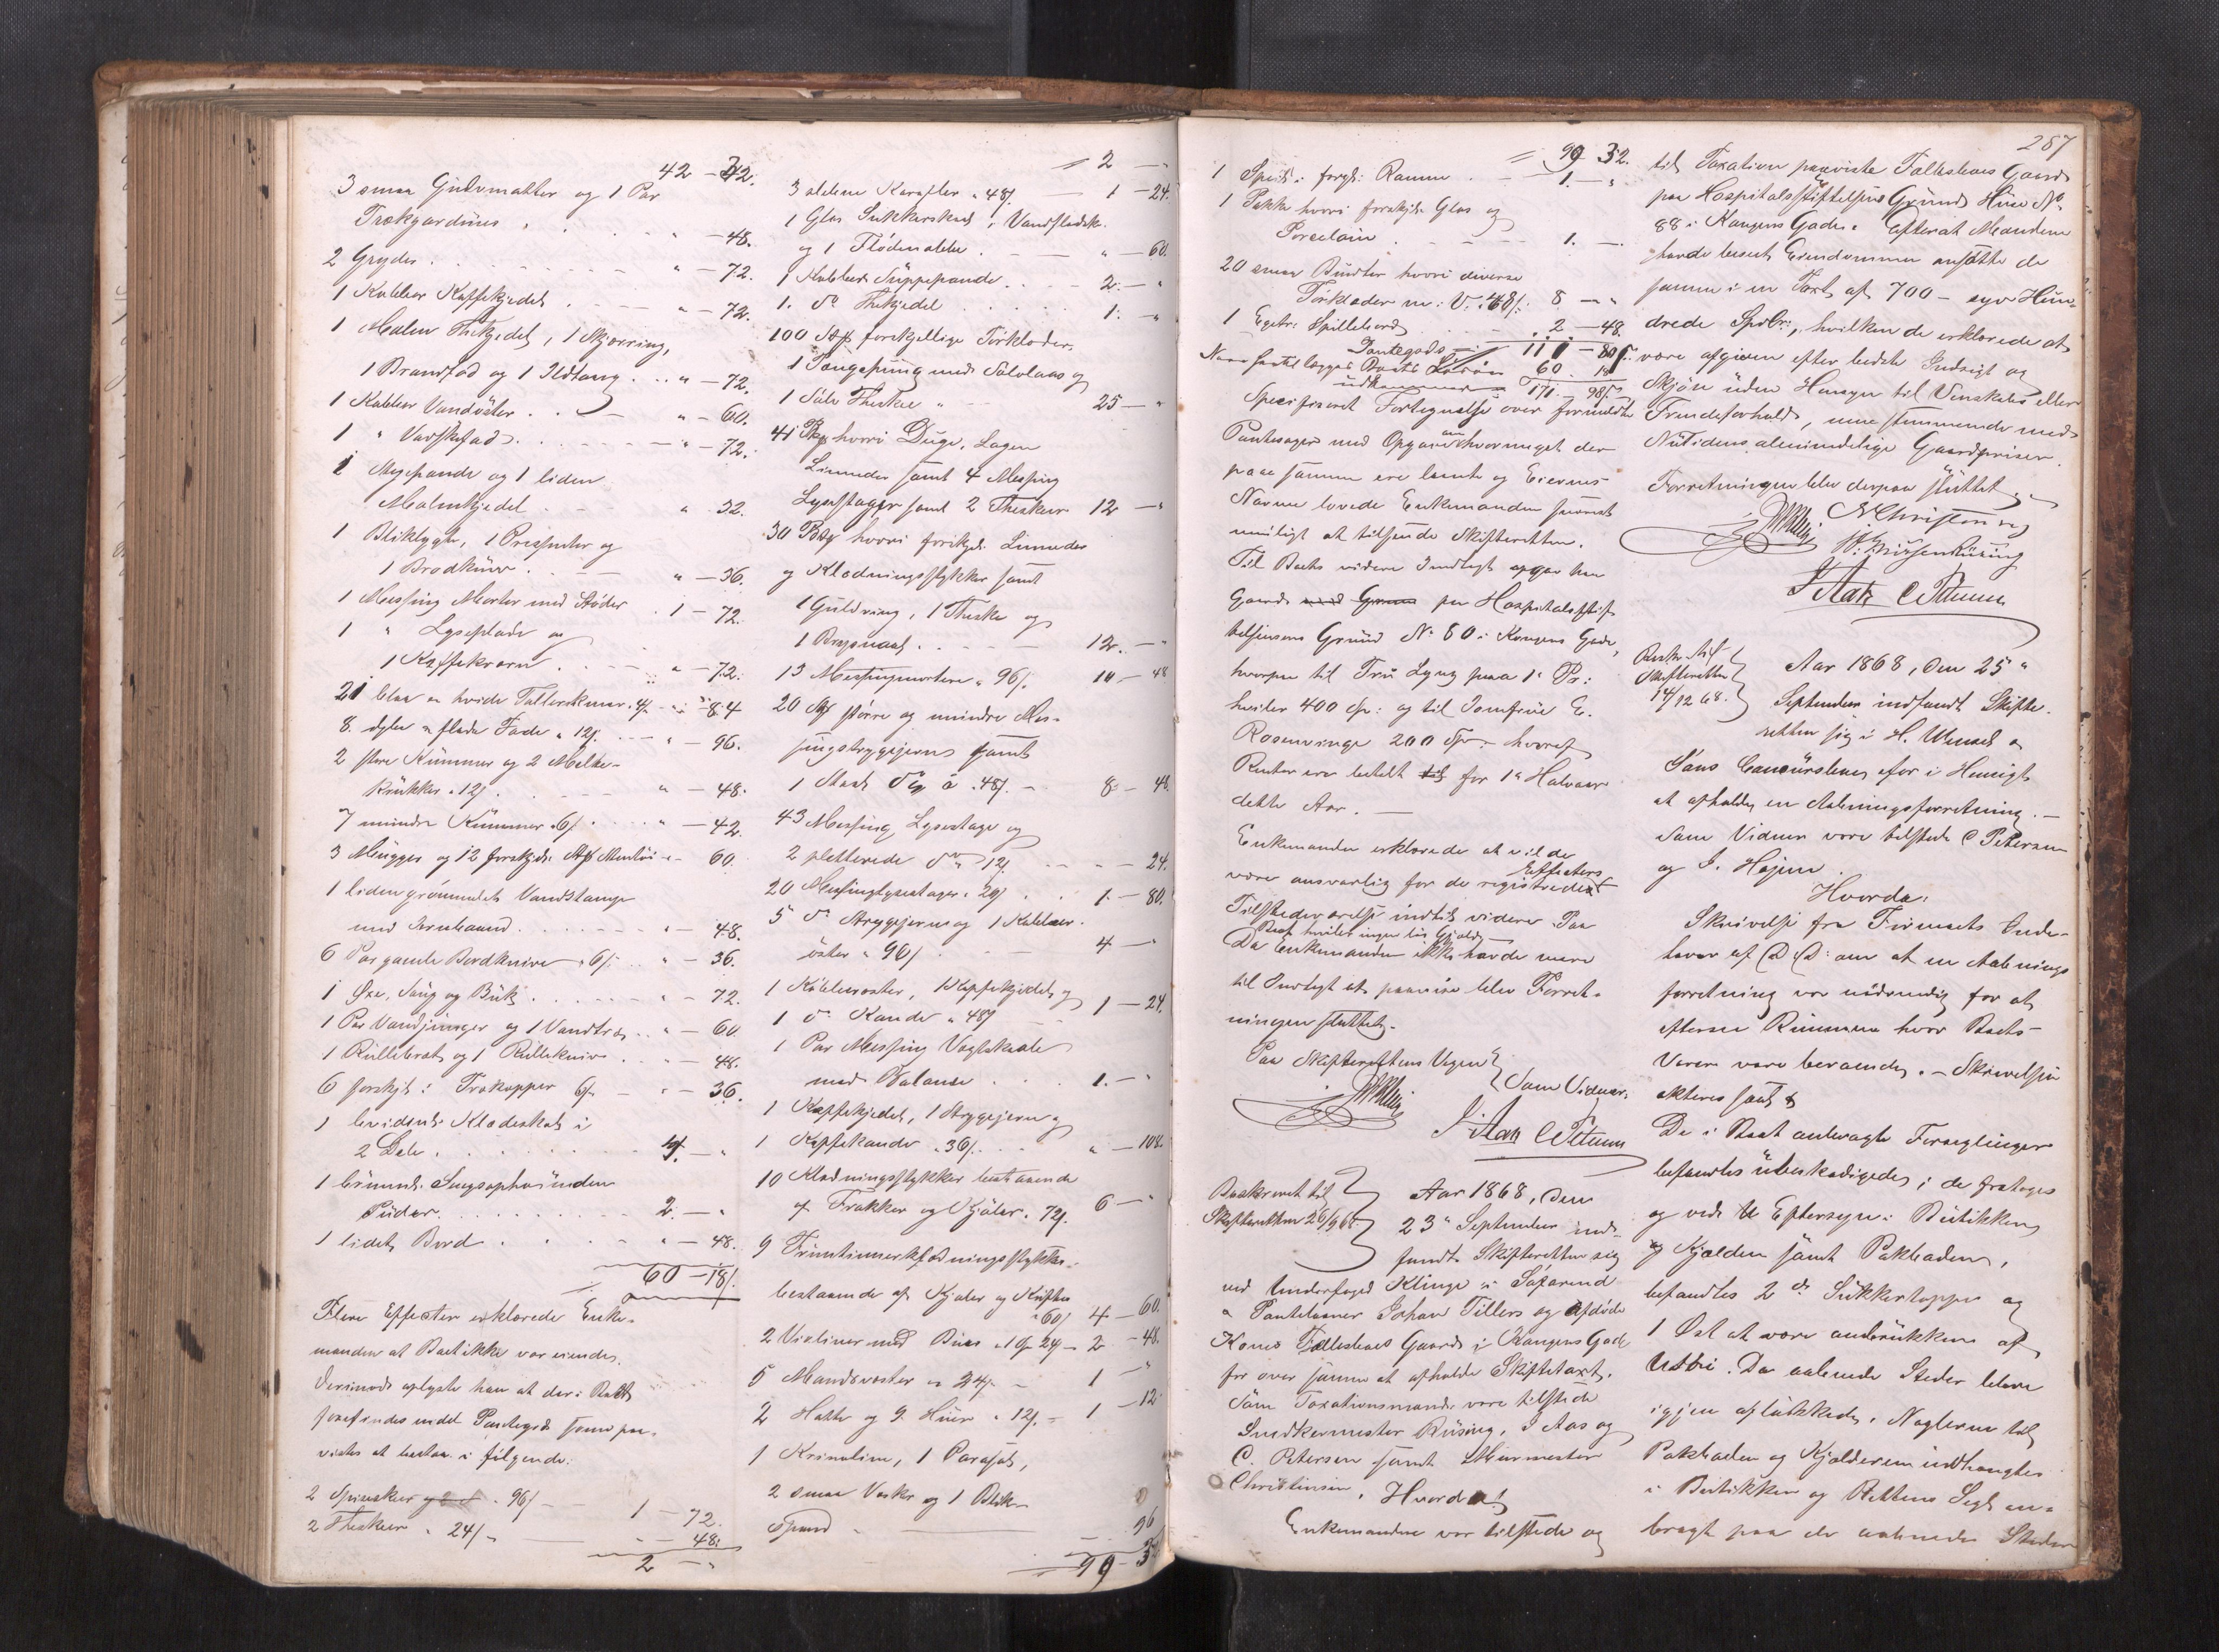 42 – 42.
3 smaa Gulvmatter og 1 Par
Trækgardiner . . . " – 48.
2 Gryder . . . " – 72.
1 Kobber Kaffekjedel . . . " – 72.
1 Malm Thekjedel, 1
1 Brandfad og 1 Ildtang . . " – 72.
1 Kobber Vandöster . . " – 60.
1 " Vaskefad . . . " – 72.
1 og 1 liden
Malmkjedel . . " 32.
1 Bliklygte, 1 og
1 Brødkurv . . " – 36.
1 Messing Morter med Støder . 1 – 72.
1 " Lyseplade og
1 Kaffekværn . . . " – 72.
21 blaa og hvide Tallerkener . 4/ " – 84
8 dybe og flade Fade a 12/. . . " – 96.
2 store Kummer og 2 Melke-
krukker a 12/ . . " – 48.
7 mindre Kummer a 6/ . . . " – 42.
3 Mugger og 12 forskjell. – 60.
1 liden grönmalet Vandstamp
med Jernbaand . . . . " – 48.
6 Par gamle Bordknive a 6/ . . " – 36.
1 Øxe, Saug og Buk . . . " – 72.
1 Par Vandspringer og 1 Vandtræ . . " – 60
1 Rullebræt og 1 Rullekniv . . . – 48.
6 forskjl: 6/ – " – 36.
1 Klædeskab i
2 Dele . . . 4. – "
1 Sengeophænden
Puder . . . . 2. – "
1 lidet Bord . . . " – 48.
60 – 18/.
Flere Effecter erklærede Enke-
manden at Boet ikke var eiendes.
Derimod oplyste han at der i Boet
forefindes endel Pantegods som paa-
vistes at bestaa i følgende:
2 Spiseskeer . 96/ – 1 – 72.
2 Theskeer . 24/ – – 48.
2 – "
2 – "
3 slebne Karafler a 48/. – 1 – 24.
1 Glas Sukkerskaal,
og 1 Flödemokke . – " – 60.
1 Kobber Suppepande . . . 2. – "
1. do Thekjedel . . . 1. – "
100 Stk forskjellige Törklæder,
1 Pungespung med Sølvlaas og
1 Sølv Theskee " – 25 – "
41 Pkr hvori Duge, Lagen
Linneder samt 4 Messing
Lysestager samt 2 Theskeer 12 – "
30 Pkr hvori forskjl. Linneder
og Klædningsstykker samt
1 Guldring, 1 Theske og
1 Brystnaal . . . – 12. – "
13 Messingmortere a 96/. 10 – 48
20 Stk større og mindre Mes-
singstrygejern samt
1 do a 48/. – 8 – 48.
43 Messing Lysestager og
2 pletterede do a 12/. – – – 24.
20 Messinglysestager a 20/ . . 1. – 80.
5 do Strygejern og 1 Kobber-
öster a 96/ . – 4 – "
1 Kobberöster, 1 Kaffekjedel og
1 do Kande a 48/ – 1 – 24.
1 Par Messing Vægtskaale
med Balance . . . 1. – "
1 Kaffekjedel, 1 Strygejern og
1 Kaffekande a 36/ . . . " – 108.
10 Klædningsstykker bestaaende
af Frakker og Kjoler a 72/. 6 – "
9 Fruentimmerklædningsstykker,
bestaaende af Kjoler og
a 60/ 4 – 60.
2 Violiner med Buer 2 – 48.
5 Mandsveste a 24/ – 1 – "
2 Hatte og 9 Huer a 12/. – 1 – 12
1 Krinoline, 1 Parasol,
2 smaa Væsker og 1 Blik-
spand – 96
99 – 32
287
99 32.
1 Speil i forgl: Ramme . – 1. – "
1 Pakke hvori forskjl. Glas og
Porcelain . . – – 1. – .
20 smaa Bundter hvori diverse
Törklæder m: V. a 48/: 8 – "
1 Egetr: Spillebord . – 2 – 48.
Pantegods – 111 – 80/.
Naar hertil lægges Boets 60. 18
udkommer 171. 98/.
Specificeret Fortegnelse over formeldte
Pantesager med Opgave om hvormeget der
paa samme ere laante og Eiernes
Navne lovede Enkemanden snarest
muligt at tilsende Skifteretten.
Til Boets videre Indtægt opgav han
Gaard paa Hospitalsstif-
telsens Grund No 80 i Kongens Gade,
hvorpaa til Fru Lyng paa 1e Pr:
hviler 400 Sp: og til Jomfrue E.
Rosenvinge 200 Sp – hvoraf
Renter ere betalt for 1e Halvaar
dette Aar. –
Enkemanden erklærede at vilde
være ansvarlig for de registrerede Effecters
Tilstedeværelse indtil videre. Paa
Boet hviler ingen lös Gjæld.
Da Enkemanden ikke havde mere
til Indtægt at paavise blev Forret-
ningen sluttet.
Paa Skifterettens Vegne Som Vidner.
J. Aas C Petersen
Beskrevet til
Skifteretten 26/9 68
Aar 1868, den
23de September ind-
fandt Skifteretten sig
ved Underfoged Klinge i
Pantelaaner Johan Tillers og afdøde
Kones Fællesboes Gaard i Kongens Gade
for over samme at afholde Skiftetaxt.
Som Taxationsmænd vare tilstede
Snedkermester Büsing, J Aas og
C. Petersen samt Murmester
Christensen. Hvorda!
Enkemanden var tilstede og
til Taxation paaviste Fællesboets Gaard
paa Hospitalsstiftelsens Grund Huus No
88 i Kongens Gade. Efterat Mændene
havde beseet Eiendommen ansatte de
samme i en Taxt af 700 – syv Hun-
drede Spdlr:, hvilken de erklærede at
være afgiven efter bedste Indsigt og
Skjøn uden Hensyn til Venskabs eller
Frændeforhold, men stemmende med
Nutidens almindelige Gaardpriser.
Forretningen blev derpaa sluttet
N Christensen
J. Aas C Petersen
Beskr. til
Skifteretten
14/12 68.
Aar 1868, den 25de
September indfandt Skifte-
retten sig i H. Wensels
Sans i Henseigt
at afholde en Aabningsforretning. –
Som Vidner vare tilstede C Petersen
og J. Høyem.
Hvorda:
Skrivelse fra Firmaets Inde-
haver af D. D: om at en Aabnings
forretning var nödvendig for at
efterse Rummene hvor Boets
Varer vare beroende. – Skrivelsen
akteres saal.
De i Boet anbragte Forseglinger
befandtes ubeskadigede; de fratoges
og ved Eftersyn i Butikken
og Kjælderen samt Pakboden,
befandtes 2 do Sukkertoppe og
1 Ost at være
De aabnede Steder bleve
igjen aflukkede, Nøglerne til
Pakboden og Kjælderen indhængtes
i Butikken og Rettens Segl an-
bragt paa de aabnede Steder